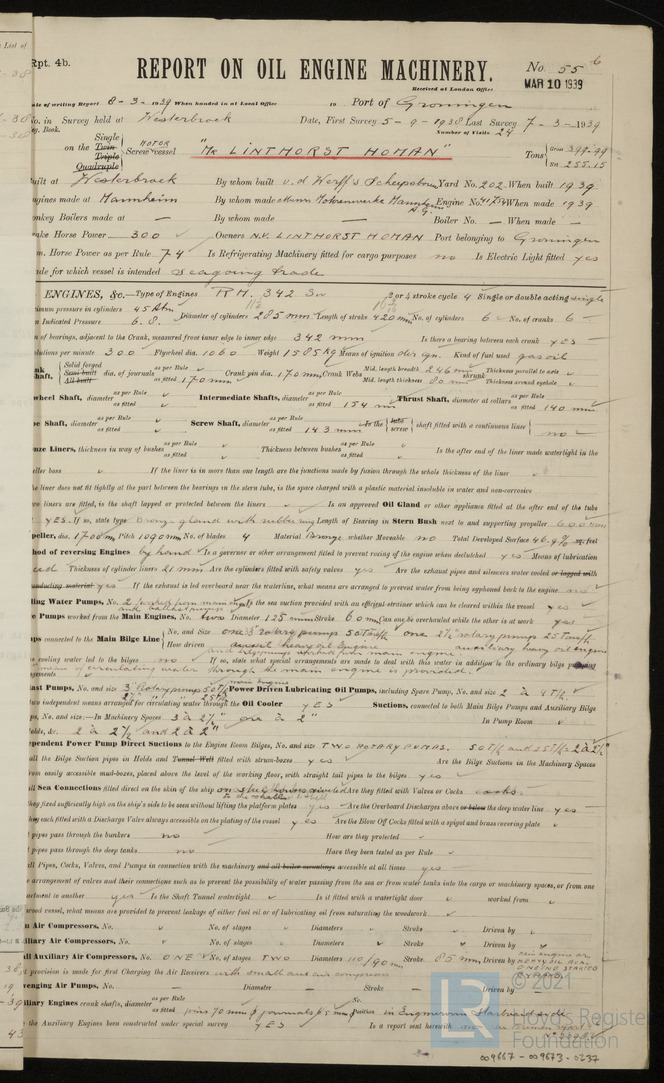 Rpt. 4b.
REPORT ON OIL ENGINE MACHINERY.
No. 55
6
Received at London Office
MAR 10 1939
Date of writing Report 8-3-1939 When handed in at Local Office 19 Port of Groningen
No. in Survey held at Westerbroek Date, First Survey 5-9-1938 Last Survey 7-3-1939
Reg. Book. Number of Visits 24
on the Single Twin Triple Quadruple MOTOR Screw vessel "Mr LINTHORST HOMAN" Tons Gross 399.99 Net 255.15
Built at Westerbroek By whom built v.d. Werff's Scheepsbouw Yard No. 202 When built 1939
Engines made at Mannheim By whom made Motorenwerke Mannheim A.G. Engine No. When made 1939
Donkey Boilers made at — By whom made — Boiler No. — When made —
Brake Horse Power 300 Owners N.V. LINTHORST HOMAN Port belonging to Groningen
Nom. Horse Power as per Rule 74 Is Refrigerating Machinery fitted for cargo purposes no Is Electric Light fitted yes
Trade for which vessel is intended Seagoing trade
ENGINES, &c.—Type of Engines R.H. 342 Su 2 or 4 stroke cycle 4 Single or double acting single
Maximum pressure in cylinders 45 Atm Diameter of cylinders 285 mm Length of stroke 420 mm No. of cylinders 6 No. of cranks 6
Mean Indicated Pressure 6.8.
of bearings, adjacent to the Crank, measured from inner edge to inner edge 342 mm Is there a bearing between each crank yes
Revolutions per minute 300 Flywheel dia. 1060 Weight 1585 kg Means of ignition Kind of fuel used gasoil
Solid forged Semi built All built dia. of journals as per Rule as fitted 170 mm Crank pin dia. 170 mm Crank Webs Mid. length breadth 246 mm Mid. length thickness 80 mm shrunk Thickness parallel to axis Thickness around eyehole
Flywheel Shaft, as per Rule as fitted Intermediate Shafts, as per Rule as fitted 154 mm Thrust Shaft, diameter at collars as per Rule as fitted 140 mm
Tube Shaft, as per Rule as fitted Screw Shaft, as per Rule as fitted 143 mm Is the tube screw shaft fitted with a continuous liner no
Bronze Liners, thickness in way of bushes as per Rule as fitted Thickness between bushes as per Rule as fitted Is the after end of the liner made watertight in the
propeller boss If the liner is in more than one length are the junctions made by fusion through the whole thickness of the liner
the liner does not fit tightly at the part between the bearings in the stern tube, is the space charged with a plastic material insoluble in water and non-corrosive
two liners are fitted, is the shaft lapped or protected between the liners Is an approved Oil Gland or other appliance fitted at the after end of the tube
yes. If so, state type Bronz gland with rubber ring Length of Bearing in Stern Bush next to and supporting propeller 600 mm
Propeller, dia. 1700 mm Pitch 1090 mm No. of blades 4 Material Bronze whether Moveable no Total Developed Surface 46.4% sq. feet
Method of reversing Engines by hand Is a governor or other arrangement fitted to prevent racing of the engine when declutched yes Means of lubrication
Thickness of cylinder liners 21 mm Are the cylinders fitted with safety valves yes Are the exhaust pipes and silencers water cooled or lagged with
non-conducting material yes If the exhaust is led overboard near the waterline, what means are arranged to prevent water from being syphoned back to the engine
Cooling Water Pumps, No. 2 Is the sea suction provided with an efficient strainer which can be cleared within the vessel yes
Pumps worked from the Main Engines, No. two Diameter 125 mm Stroke 60 mm Can one be overhauled while the other is at work yes
Pumps connected to the Main Bilge Line No. and Size one 3" rotary pumps 50 T.p.h. one 2½" rotary pumps 25 T.p.h.
How driven auxiliary heavy oil engine
Is the cooling water led to the bilges no If so, state what special arrangements are made to deal with this water in addition to the ordinary bilge pumping
arrangements means of circulating water through the main engine is provided.
Ballast Pumps, No. and size 3" Rotary pumps 50 T/h Power Driven Lubricating Oil Pumps, including Spare Pump, No. and size 2 à 4 T/h.
two independent means arranged for circulating water through the Oil Cooler YES Suctions, connected to both Main Bilge Pumps and Auxiliary Bilge
Pumps, No. and size:—In Machinery Spaces 3 à 2½" one à 2" In Pump Room
Holds, &c. 2 à 2½" and 2 à 2"
Independent Power Pump Direct Suctions to the Engine Room Bilges, No. and size TWO ROTARY PUMPS. 50 T/h and 25 T/h = 2 à 2½"
all the Bilge Suction pipes in Holds and Tunnel Well fitted with strum-boxes yes Are the Bilge Suctions in the Machinery Spaces
from easily accessible mud-boxes, placed above the level of the working floor, with straight tail pipes to the bilges yes
all Sea Connections fitted direct on the skin of the ship Are they fitted with Valves or Cocks cocks.
they fixed sufficiently high on the ship's side to be seen without lifting the platform plates yes Are the Overboard Discharges above or below the deep water line yes
they each fitted with a Discharge Valve always accessible on the plating of the vessel yes Are the Blow Off Cocks fitted with a spigot and brass covering plate
pipes pass through the bunkers no How are they protected
pipes pass through the deep tanks no Have they been tested as per Rule
all Pipes, Cocks, Valves, and Pumps in connection with the machinery and all boiler mountings accessible at all times yes
the arrangement of valves and their connections such as to prevent the possibility of water passing from the sea or from water tanks into the cargo or machinery spaces, or from one
compartment to another yes Is the Shaft Tunnel watertight Is it fitted with a watertight door worked from
wood vessel, what means are provided to prevent leakage of either fuel oil or of lubricating oil from saturating the woodwork
Main Air Compressors, No. No. of stages Diameters Stroke Driven by
Auxiliary Air Compressors, No. No. of stages Diameters Stroke Driven by
Small Auxiliary Air Compressors, No. ONE No. of stages TWO Diameters 110/90 mm Stroke 85 mm Driven by
What provision is made for first Charging the Air Receivers with small aux air compressor
Scavenging Air Pumps, No. — Diameter — Stroke — Driven by —
Auxiliary Engines crank shafts, diameter as per Rule as fitted pins 70 mm journals 65 mm No. Position in Engineroom Starboard side
the Auxiliary Engines been constructed under special survey YES Is a report sent herewith
© 2021
Lloyd's Register
Foundation
LR
009667-009673-0237